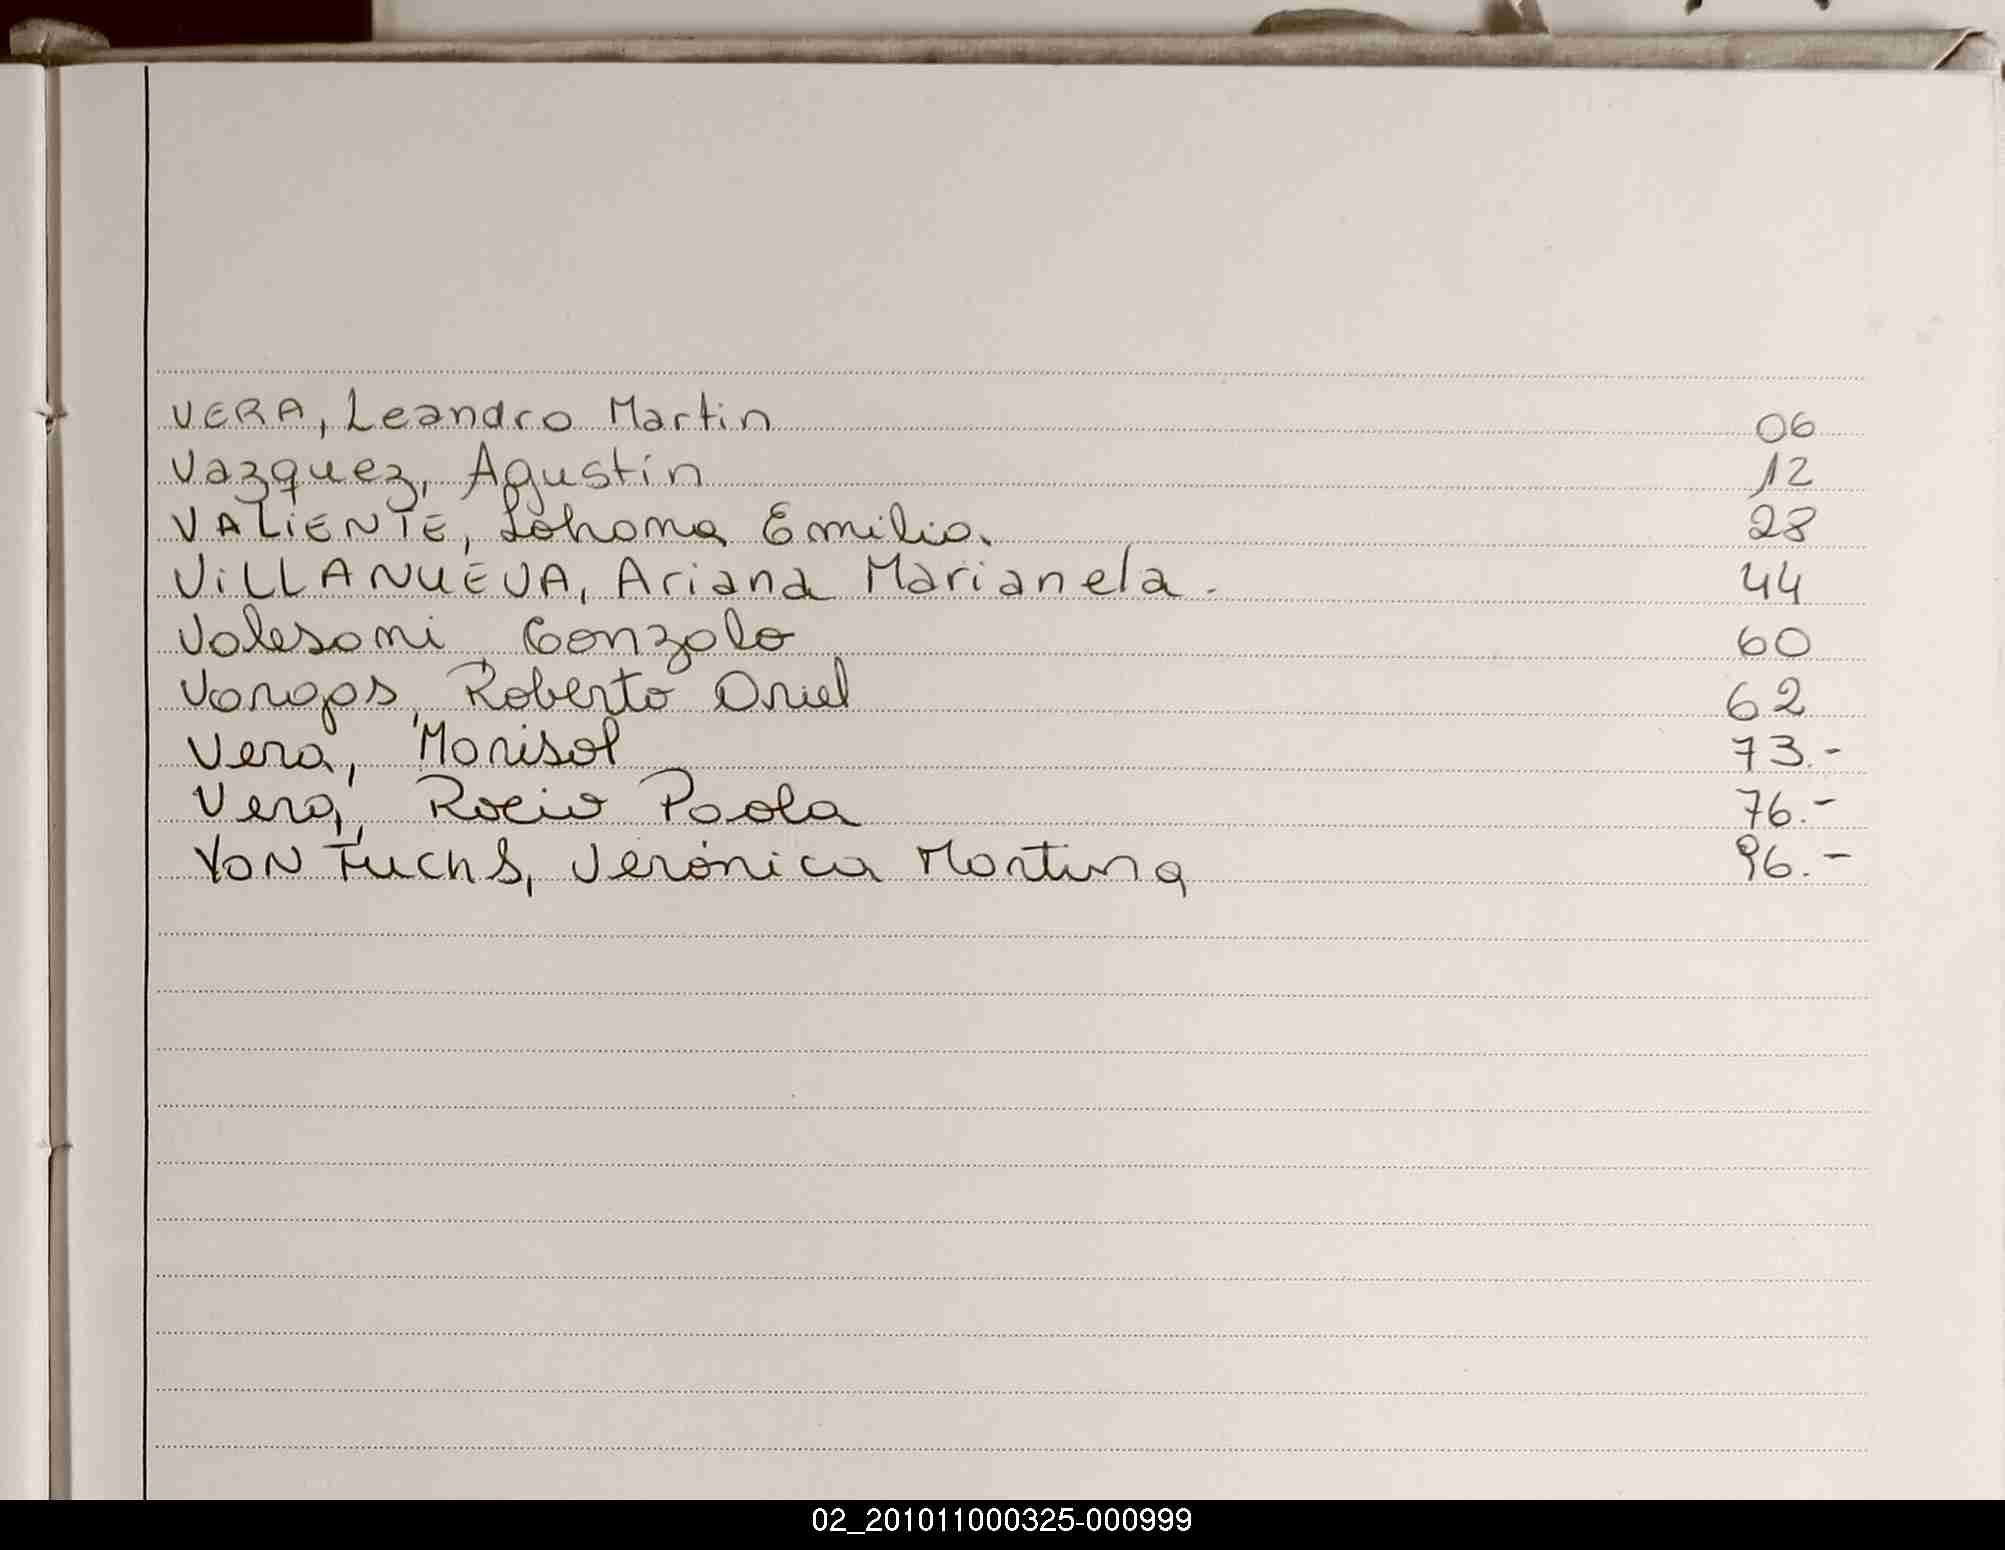 VERA, Leandro Martin 06
Vazquez, Agustín 12
VALIENTE, Lohana Emilia. 28
VILLANUEVA, Ariana Marianela. 44
Valesani Gonzalo 60
Vargas, Roberto Oriel 62
Vera, Marisol 73.-
Vera, Rocio Paola 76.-
VON Fuchs, Verónica 96.-
02_201011000325-000999